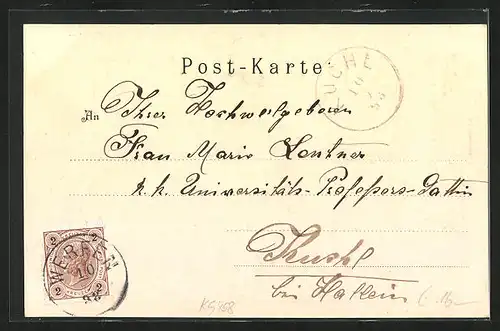 Post-Karte
KUCHL
10
98
An Ihrer Hochwohlgeboren
Frau Marie Lentner
k. k. Universitäts-Professors-Gattin
Kuchl
bei Hallein
2 2
2 2
WERFEN
10
98
KG 768